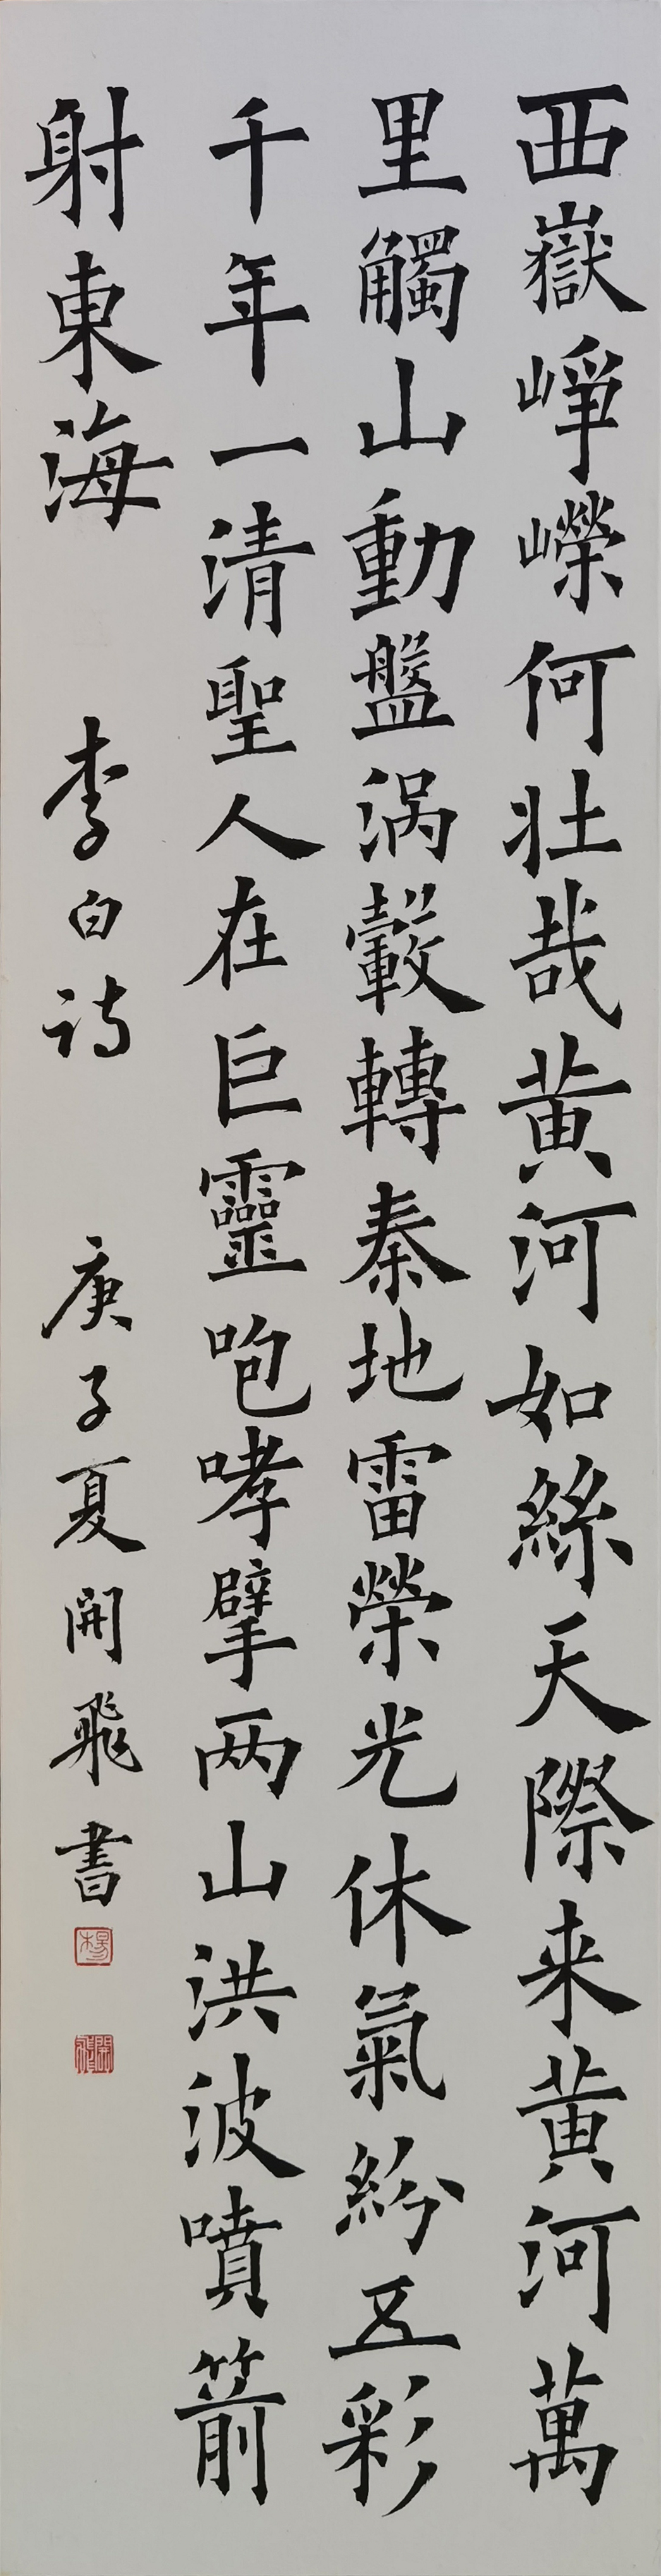 西嶽崢嶸何壮哉黄河如絲天際来黄河萬
里觸山動盤渦轂轉秦地雷榮光休氣紛五彩
千年一清聖人在巨靈咆哮擘两山洪波噴箭
射東海 李白诗 庚子夏開飛書